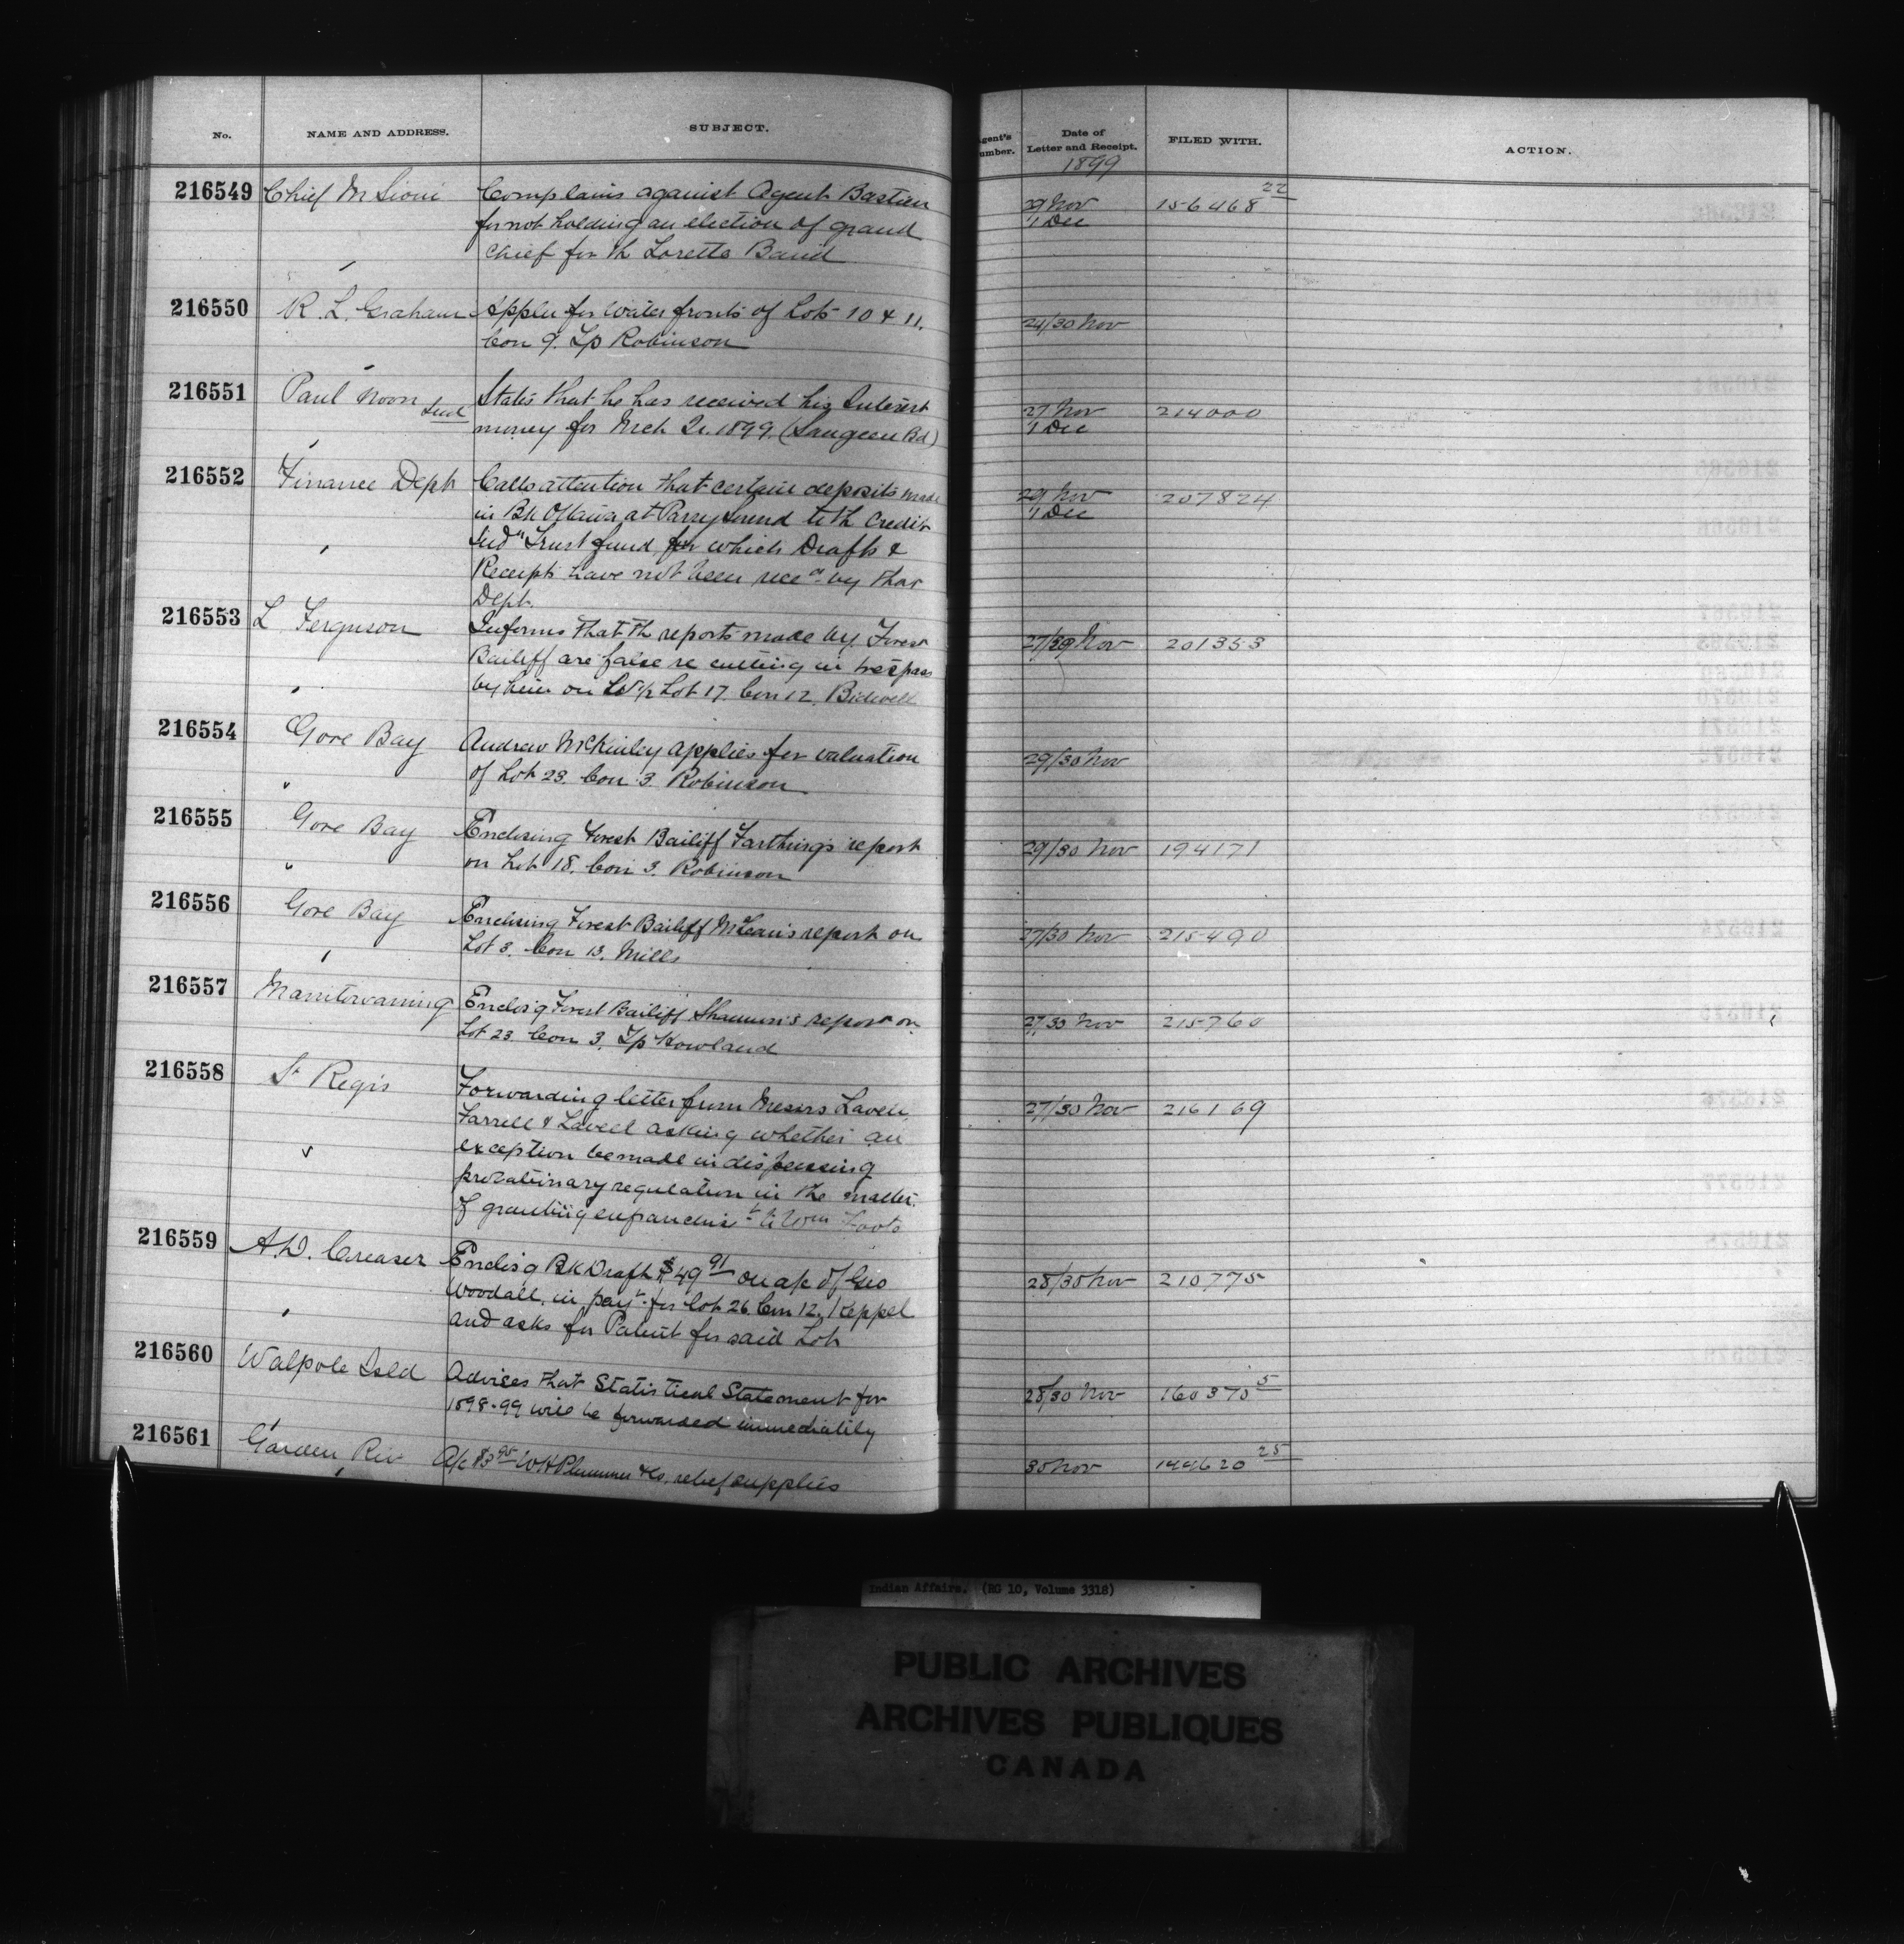 No. NAME AND ADDRESS. SUBJECT. Agent's Number. Date of Letter and Receipt. FILED WITH. ACTION.
1899
216549 Chief M Sioui Complains against Agent Bastien 29 Nov 156468 22
for not holding an election of grand 1 Dec
chief for th Lorette Band
216550 R. L. Graham Applies for water fronts of Lots 10 & 11, 24/30 Nov
Con 9. Tp Robinson
216551 Paul Noon States that he has received his Interest 27 Nov 214000
Ind money for Mch Qr. 1899. (Saugeen Bd) 1 Dec
216552 Finance Dept Calls attention that certain deposits made 29 Nov 207824
in Bk Ottawa at Parry Sound to th Credit 1 Dec
Indn Trust fund, for which Drafts &
Receipts have not been recd by that
Dept.
216553 L Ferguson Informs that th reports made by Forest 27/29 Nov 201353
Bailiff are false re cutting in trespass
by him on W½ Lot 17. Con 12. Bidwell
216554 Gore Bay Andrew McKinley applies for valuation 29/30 Nov
of Lot 23. Con 3. Robinson
216555 Gore Bay Enclosing Forest Bailiff Farthing's report 29/30 Nov 194171
on Lot 18. Con 3. Robinson
216556 Gore Bay Enclosing Forest Bailiff McLean's report on 27/30 Nov 215490
Lot 3. Con 13. Mills
216557 Manitowaning Enclos'g Forest Bailiff report on 27/30 Nov 215760
Lot 23. Con 3. Tp Howland
216558 St Regis Forwarding letter from Messrs Lavell, 27/30 Nov 216169
Farrell & Lavell asking whether an
exception be made in dispensing
probationary regulation in the matter
of granting enfranchist to Wm Foote
216559 A. D. Creaser Enclos'g Bk Draft $49 91 on a/c of Geo 28/30 Nov 210775
Woodall, in payt. for Lot 26. Con 12. Keppel
and asks for Patent for said Lot
216560 Walpole Isld Advises that Statistical Statement for 28/30 Nov 160370 5
1898-99 will be forwarded immediately
216561 Garden Riv A/c $3 95 W H Plummer & Co. relief supplies 30 Nov 144620 25
Indian Affairs. (RG 10, Volume 3318)
PUBLIC ARCHIVES
ARCHIVES PUBLIQUES
CANADA